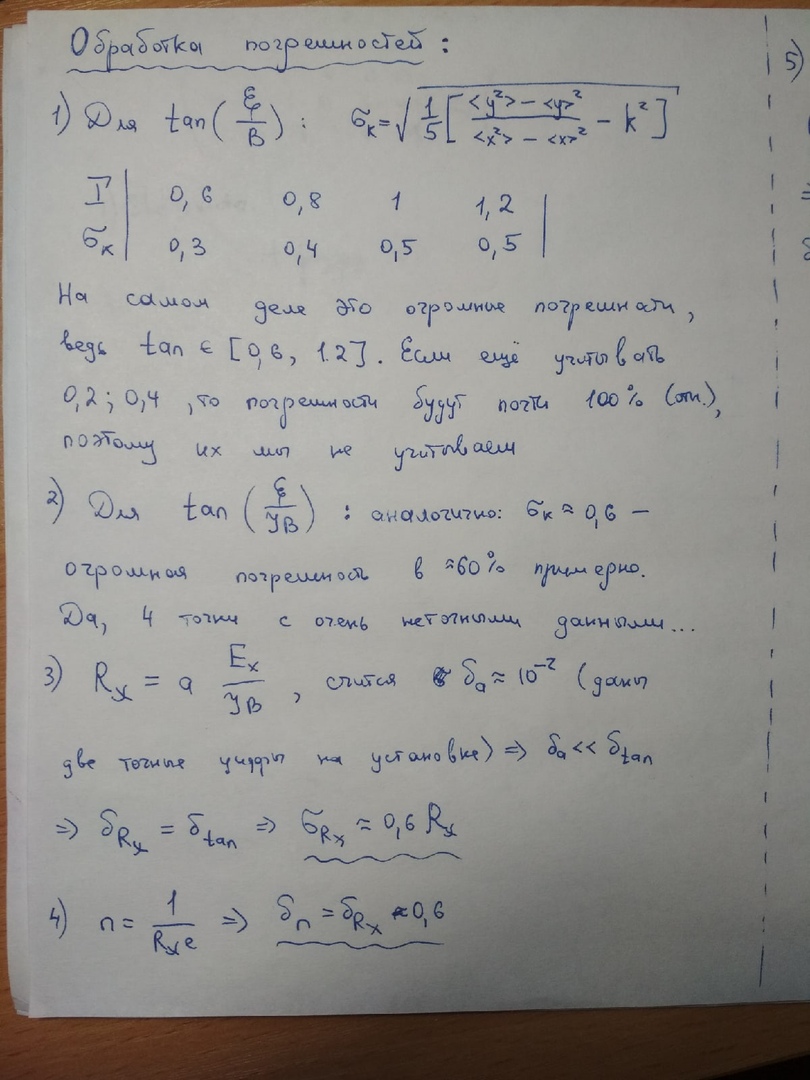 Обработка погрешностей:
1) Для tan(ℰ/B): σ_k = √(1/5 [(<y²> − <y>²)/(<x²> − <x>²) − k²])
I | 0,6 0,8 1 1,2 |
σ_k | 0,3 0,4 0,5 0,5 |
На самом деле это огромные погрешнсти,
ведь tan ∈ [0,6, 1.2]. Если ещё учитывать
0,2; 0,4, то погрешности будут почти 100% (отн.),
поэтому их мы не учитываем
2) Для tan(ℰ/IB): аналогично: σ_k ≈ 0,6 —
огромная погрешность в ≈60% примерно.
Да, 4 точки с очень неточными данными...
3) R_x = a E_x/IB, счится δ_a ≈ 10⁻² (даны
две точные цифры на установке) => δ_a << δ_tan
=> δ_R_x = δ_tan => σ_R_x ≈ 0,6 R_x
4) n = 1/(R_x e) => δ_n = δ_R_x ≈ 0,6
5)